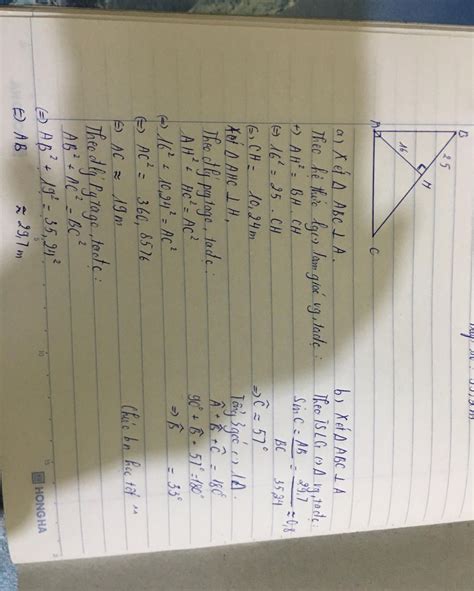 B
25
H
16
A
C
a) Xét Δ ABC ⊥ A.
Theo hệ thức lg trong tam giác vg, ta đc:
+) AH² = BH . CH
(=) 16² = 25 . CH
(=) CH = 10,24m
Xét Δ AHC ⊥ H.
Theo đlý pytago, ta đc:
AH² + HC² = AC²
(=) 16² + 10,24² = AC²
(=) AC² = 360,8576
(=) AC ≈ 19m
Theo đlý Pytago, ta đc:
AB² + AC² = BC²
(=) AB² + 19² = 35,24²
(=) AB ≈ 29,7m
b) Xét Δ ABC ⊥ A
Theo TSLG Δ vg, ta đc:
Sin C = AB/BC = 29,7/35,24 ≈ 0,8
=> Ĉ = 57°
Tổng 3 góc 1Δ.
Â + B̂ + Ĉ = 180°
90° + B̂ + 57° = 180°
=> B̂ = 33°
Chúc bn học tốt
HONG HA